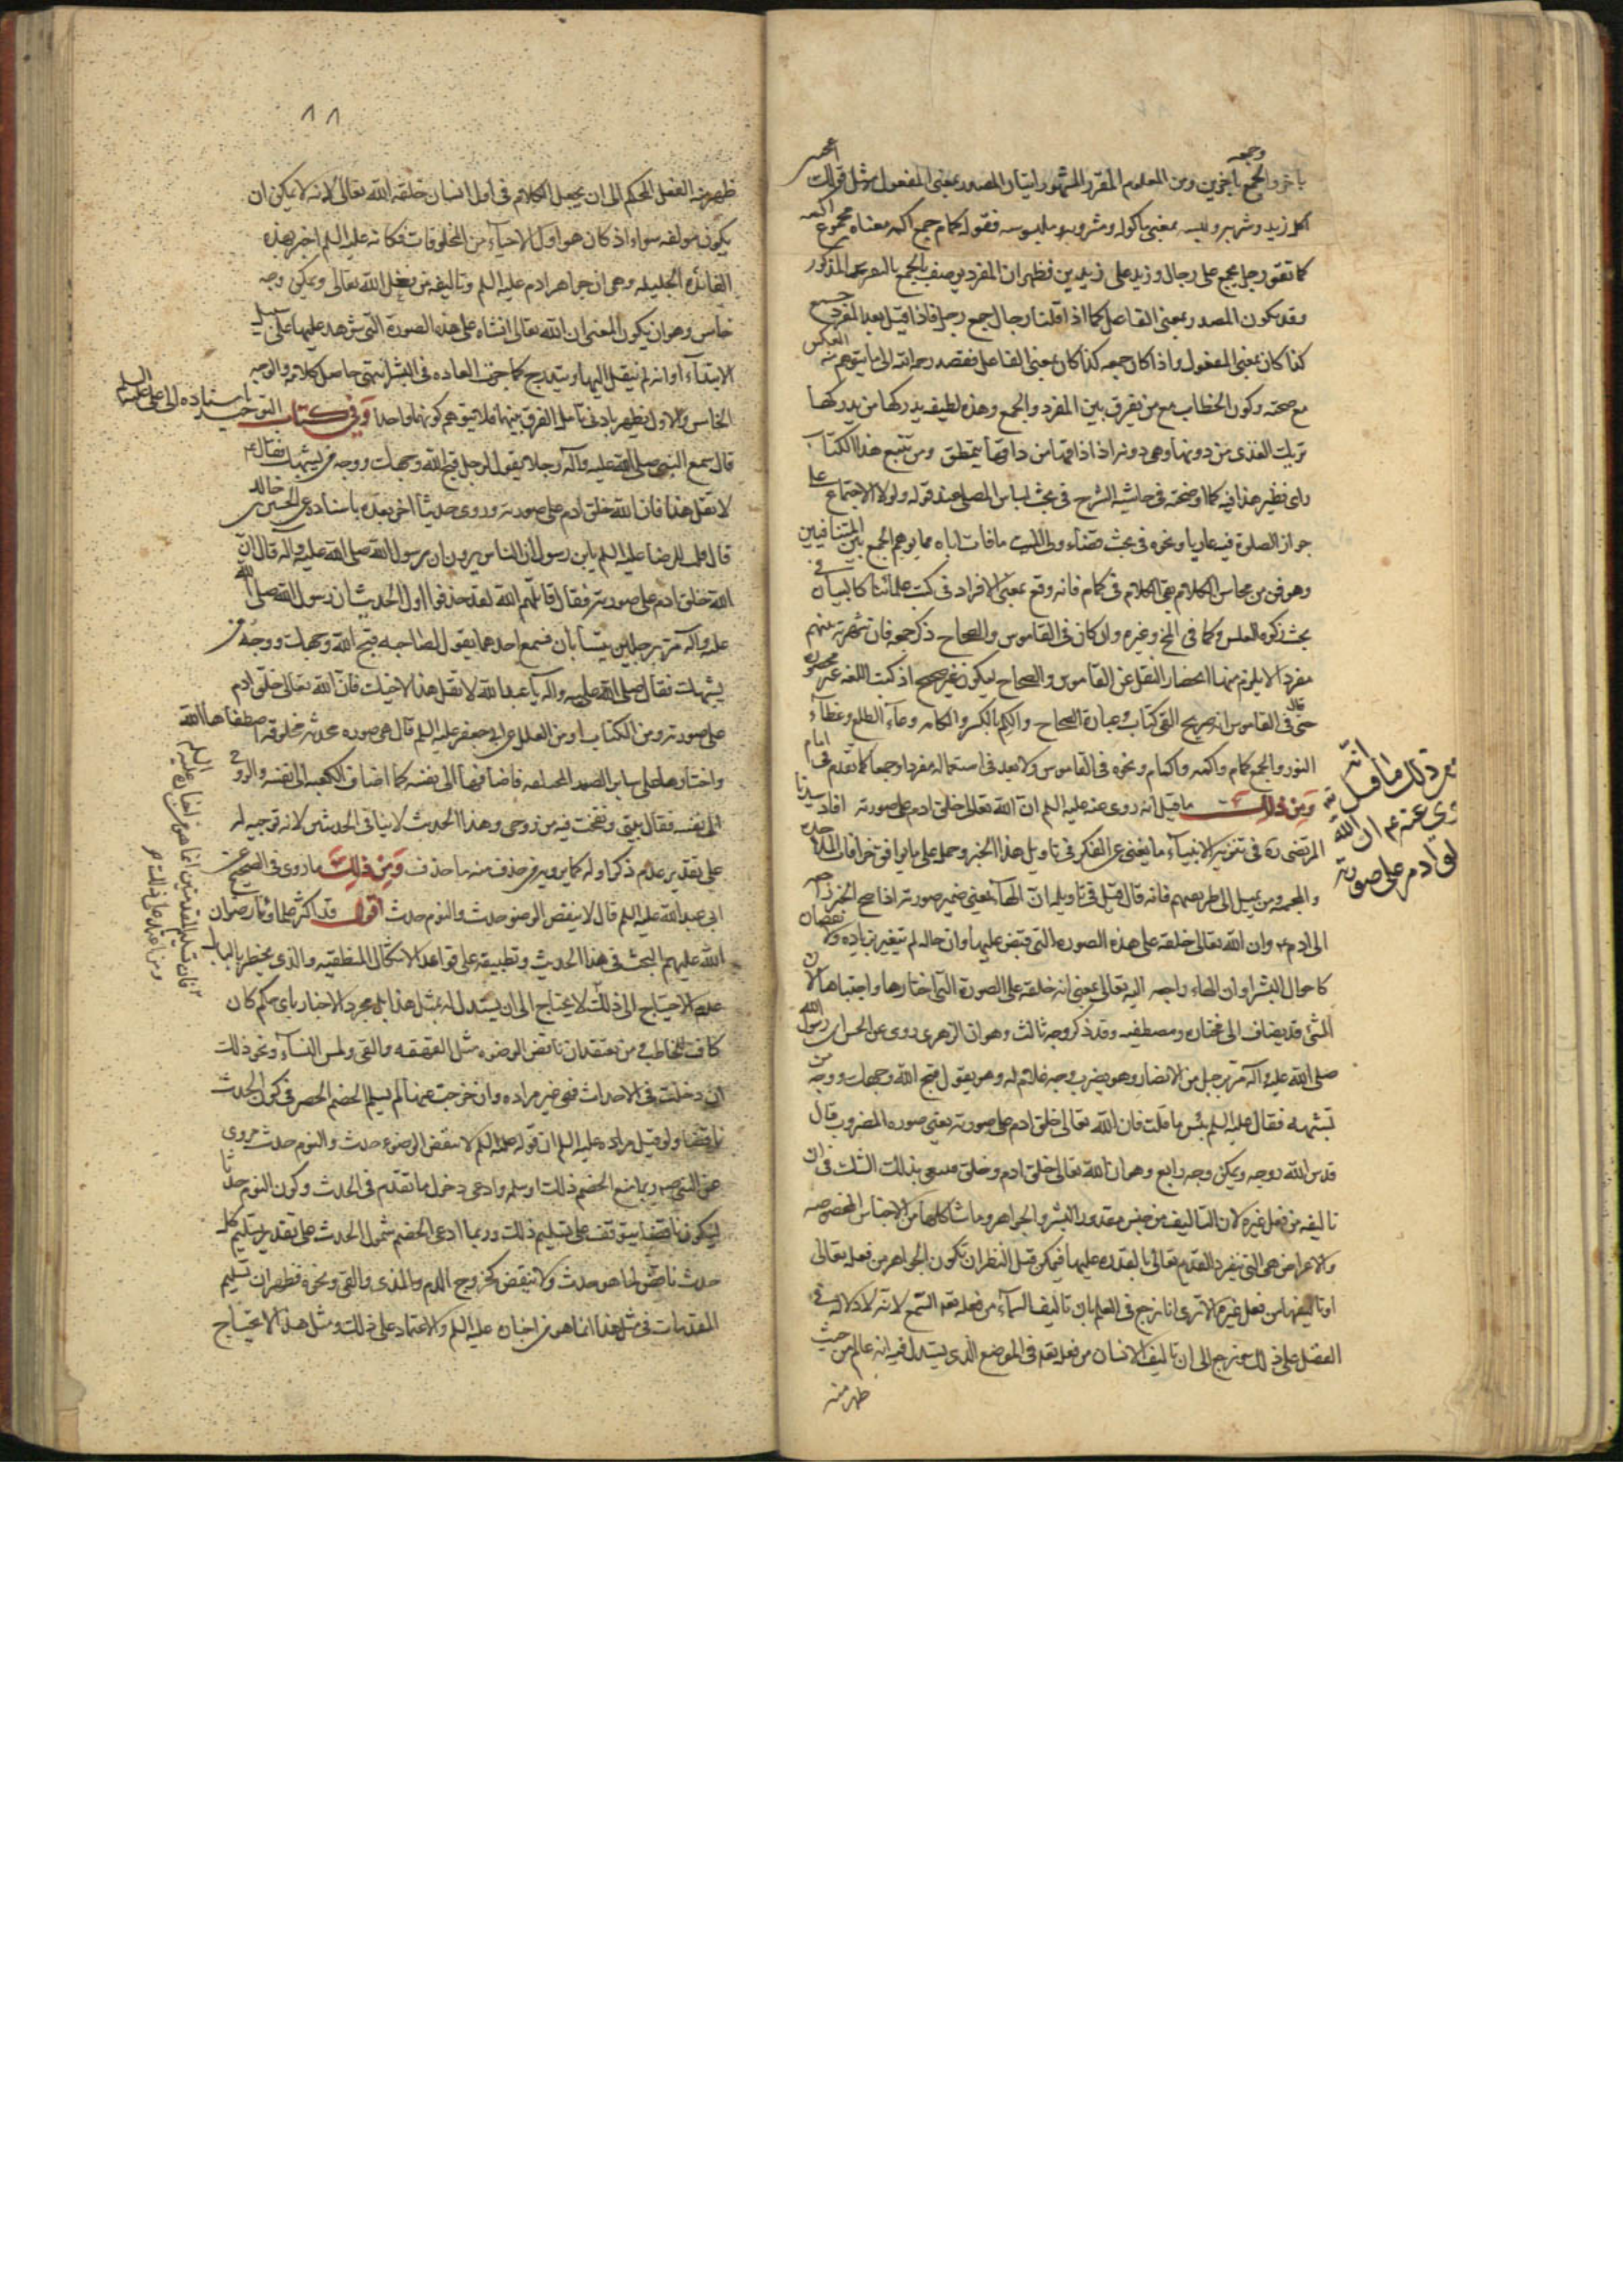 باخر والجمع باخرين ومن المعلوم المقرر المشهور اتيان المصدر بمعنى المفعول مثل قولك
اكل زيد وشربه ولبسه بمعنى ماكوله ومشروبه وملبوسه فقوله كمام جمع اكمه معناه مجموع اكمه
كما تقول رجل يجمع على رجال وزيد على زيدين فظهر ان المفرد يوصف بالجمع المذكور
وقد يكون المصدر بمعنى الفاعل كما اذا قلت رجال جمع رجل فاذا قيل بعد المفرد جمعه
كذا كان بمعنى المفعول واذا كان جمعه كذا كان بمعنى الفاعل فقصد رحمه الله الى ما يتوهم منه العكس
مع صحته وكون الخطاب مع من يفرق بين المفرد والجمع وهذه لطيفه يدركها من يدركها
دونها وهي دونه اذا ذاقها من ذاقها يتمطق ومن تتبع هذا الكتاب
راى نظير هذا فيه كما اوضحته في حاشية الشرح في بحث لباس المصلى عند قوله ولولا الاجتماع على
جواز الصلوة فيه عاريا ونحوه في بحث قضاء ولى الميت ما فات اباه مما يوهم الجمع بين المتنافيين
وهو فن من محاسن الكلام بقى الكلام في كمام فانه وقع بمعنى الافراد في كتب علمائنا كالبيان في
بحث زكوة الغلس وكما في وغيره وان كان في القاموس والصحاح ذكر جمعه فان شهرته بينهم
مفردا لا يلزم منها انحصار النقل عن القاموس والصحاح ليكون غير صحيح اذ كتب اللغه غير محصوره
حتى قال في القاموس انه صريح التى كتاب وعبارة الصحاح والكم بالكسر والكمامه وعاء الطلع وغطاء
النور والجمع كمام واكمه واكمام ونحوه في القاموس ولا بعد في استعماله مفردا وجمعا كما تقدم في امام
ومن ذلك ما قيل انه روى عنه عليه السلم ان الله تعالى خلق ادم على صورته افاد سيدنا
المرتضى ره في تنزيه الانبياء ما يغنى عن الفكر في تاويل هذا الخبر وحمله على ما يوافق خرافات الملاحده
والمجسمه ومن يميل الى طريقتهم فانه قال قيل في تاويله ان الهاء يعنى ضمير صورته اذا صح الخبر راجعه
الى ادم ع وان الله تعالى خلقه على هذه الصورة التي قبض عليها وان حاله لم يتغير بزياده ولا نقصان
كاحوال البشر او ان الهاء راجعه اليه تعالى بمعنى انه خلقه على الصورة التي اختارها واجتباها لان
الشئ قد يضاف الى مختاره ومصطفيه وقد ذكر وجه ثالث وهو ان الزهرى روى عن الحسن ان رسول الله
صلى الله عليه واله مر برجل من الانصار وهو يضرب وجه غلام له وهو يقول قبح الله وجهك ووجه من
تشبهه فقال عليه السلم بئس ما قلت فان الله تعالى خلق ادم على صورته يعنى صورة المضروب قال
قدس الله روحه ويمكن وجه رابع وهو ان الله تعالى خلق ادم وخلق صورته لينتفى بذلك الشك في ان
تاليفه من فعل غيره لان التاليف من جنس مقدور البشر والجواهر وما شاكلها من الاجناس المخصوصه
والاعراض هي التي ينفرد القديم تعالى بالقدره عليها فيمكن قبل النظر ان تكون الجواهر من فعله تعالى
او تاليفها من فعل غيره الا ترى انا نرجع في العلم بان تاليف السماء من فعله تعالى الى السمع لانه لا دلاله في
العقل على ذلك ونرجع الى ان تاليف الانسان من فعله تعالى في الموضع الذى يستدل فيه انه عالم من حيث
ظهر منه
من ذلك ما قيل انه
روى عنه ع م ان الله
خلق ادم على صورته
٨٨
ظهر منه الفعل المحكم الى ان يجعل الكلام في اول انسان خلقه الله تعالى لانه لا يمكن ان
يكون مولفه سواه اذ كان هو اول الاحياء من المخلوقات فكانه عليه السلم اخبر بهذه
الفائده الجليله وهي ان جواهر ادم عليه السلم وتاليفه من فعل الله تعالى ويمكن وجه
خامس وهو ان يكون المعنى ان الله تعالى انشاه على هذه الصورة التي شوهد عليها على سبيل
الابتداء وانه لم ينتقل اليها ويتدرج كما جرت العاده في البشر انتهى حاصل كلامه والوجه
الخامس والاول يظهر بادنى تامل الفرق بينهما فلا يتوهم كونهما واحدا وفي كتاب التوحيد باسناده الى على عليه السلم
قال سمع النبي صلى الله عليه واله رجلا يقول لرجل قبح الله وجهك ووجه من يشبهك فقال ع
لا تقل هذا فان الله خلق ادم على صورته وروى حديثا اخر بعده باسناده عن الحسين بن خالد
قال قلت للرضا عليه السلم يابن رسول الله ان الناس يروون ان رسول الله صلى الله عليه واله قال ان
الله خلق ادم على صورته فقال قاتلهم الله لقد حذفوا اول الحديث ان رسول الله صلى الله
عليه واله مر برجلين يتسابان فسمع احدهما يقول لصاحبه قبح الله وجهك ووجه من
يشبهك فقال صلى الله عليه واله يا عبد الله لا تقل هذا لاخيك فان الله تعالى خلق ادم
على صورته ومن الكتاب او من العلل عن ابي جعفر عليه السلم قال هي صوره محدثه مخلوقه اصطفاها الله
واختارها على ساير الصور المختلفه فاضافها الى نفسه كما اضاف الكعبه الى نفسه والروح
الى نفسه فقال بيتى ونفخت فيه من روحى وهذا الحديث لا ينافى الحديثين لانه توجيه له
على تقدير عدم ذكر اوله كما يرويه من حذف منه ما حذف ومن ذلك ما روى في الصحيح عن
ابى عبد الله عليه السلم قال لا ينقض الوضوء الا حدث والنوم حدث اقول قد اكثر علماؤنا رضوان
الله عليهم البحث في هذا الحديث وتطبيقه على قواعد الاشكال المنطقيه والذى يخطر بالبال
عدم الاحتياج الى ذلك لا يحتاج الى ان يستدل له بمثل هذا بل مجرد الاخبار باى حكم كان
كاف للمخاطب ومن يعتقد ان ناقض الوضوء مثل القهقهه والقى ولمس النساء ونحو ذلك
ان دخلت في الاحداث فهي غير مراده وان خرجت عنها لم يسلم الخصم الحصر في كون الحدث
ناقضا ولو قيل مراده عليه السلم ان قوله عليه السلم لا ينقض الوضوء الا حدث والنوم حدث مروى
عن النبي صم وربما منع الخصم ذلك او سلمه وادعى دخول ما تقدم في الحدث وكون النوم حدثا
ليكون ناقضا يتوقف على تسليم ذلك وربما ادعى الخصم شمول الحدث على تقدير تسليم كل
حدث ناقض لما هو حدث ولا ينقض كخروج الدم والمذى والقى ونحوه فظهر ان تسليم
المقدمات في مثل هذا انما هو من اخباره عليه السلم والاعتماد على ذلك ومثل هذا لا يحتاج
فان تسليم المقدمتين انما هو من اخباره عليه السلم
ومن اعتماد على ذلك